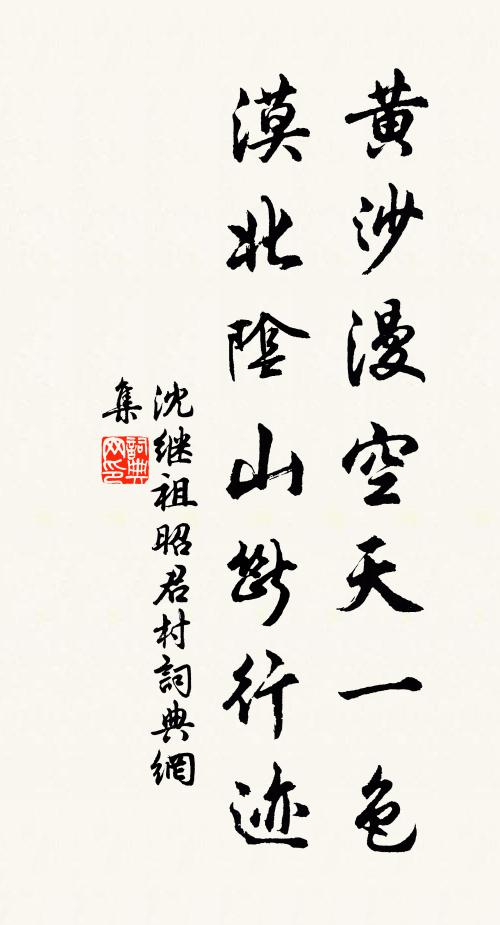 黄沙漫空天一色
漠北陰山斷行迹
沈继祖昭君村詞典網
集
詞典
网印